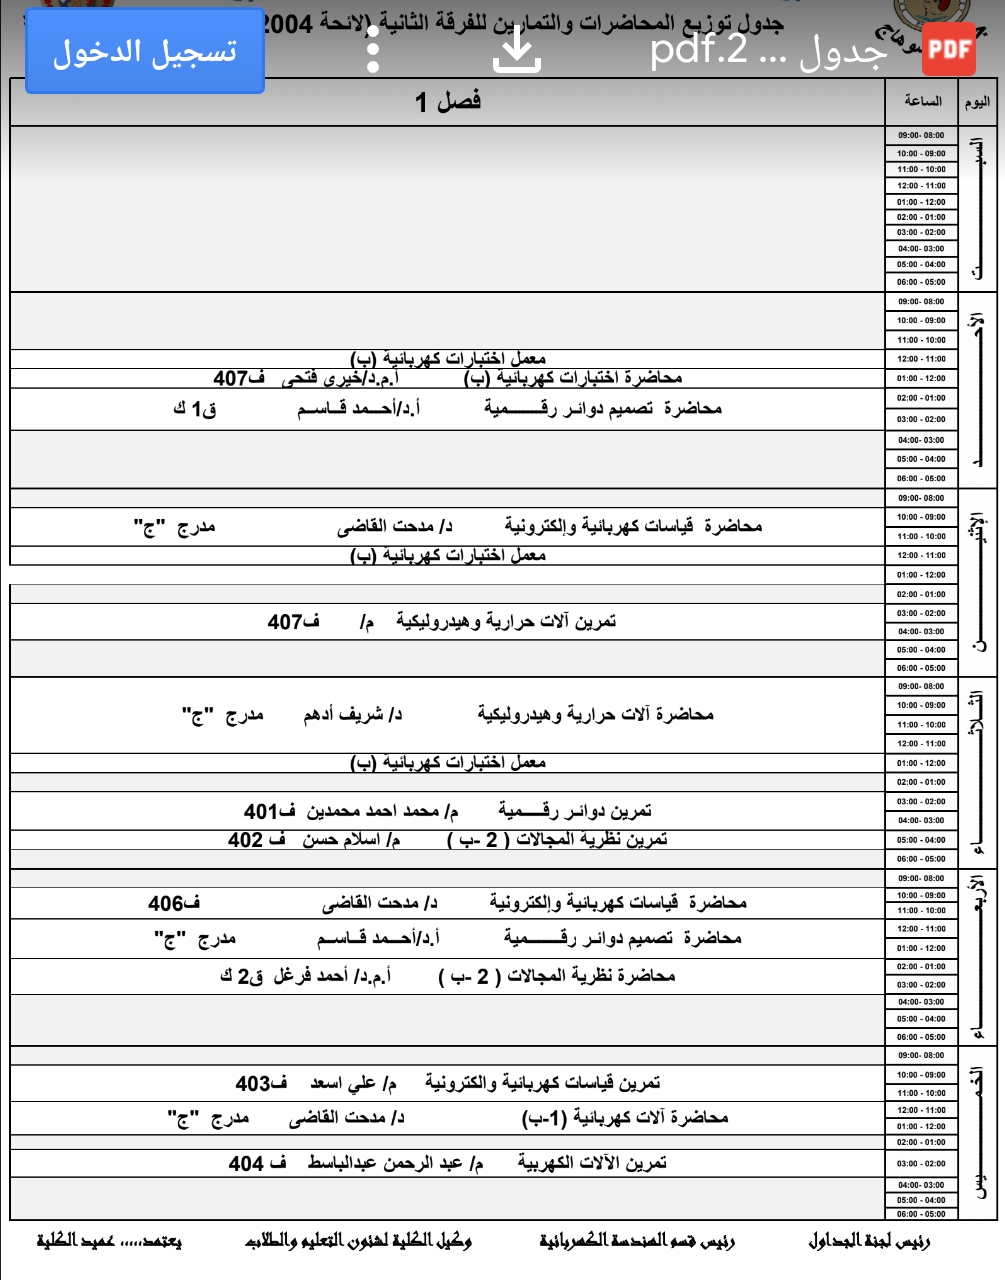 جدول توزيع المحاضرات والتمارين للفرقة الثانية (لائحة 2004
تسجيل الدخول
جدول ... 2.pdf
PDF
اليوم الساعة فصل 1
السبت
09:00- 08:00
10:00 - 09:00
11:00 - 10:00
12:00 - 11:00
01:00 - 12:00
02:00 - 01:00
03:00 - 02:00
04:00- 03:00
05:00 - 04:00
06:00 - 05:00
الأحد
09:00- 08:00
10:00 - 09:00
11:00 - 10:00
12:00 - 11:00 معمل اختبارات كهربائية (ب)
01:00 - 12:00 محاضرة اختبارات كهربائية (ب) أ.م.د/خيرى فتحى ف407
02:00 - 01:00 محاضرة تصميم دوائر رقمية أ.د/أحمد قاسم ق1 ك
03:00 - 02:00
04:00- 03:00
05:00 - 04:00
06:00 - 05:00
الإثنين
09:00- 08:00
10:00 - 09:00 محاضرة قياسات كهربائية وإلكترونية د/ مدحت القاضى مدرج "ج"
11:00 - 10:00
12:00 - 11:00 معمل اختبارات كهربائية (ب)
01:00 - 12:00
02:00 - 01:00
03:00 - 02:00 تمرين آلات حرارية وهيدروليكية م/ ف407
04:00- 03:00
05:00 - 04:00
06:00 - 05:00
الثلاثاء
09:00- 08:00
10:00 - 09:00 محاضرة آلات حرارية وهيدروليكية د/ شريف أدهم مدرج "ج"
11:00 - 10:00
12:00 - 11:00
01:00 - 12:00 معمل اختبارات كهربائية (ب)
02:00 - 01:00
03:00 - 02:00 تمرين دوائر رقمية م/ محمد احمد محمدين ف401
04:00- 03:00
05:00 - 04:00 تمرين نظرية المجالات ( 2 -ب ) م/ اسلام حسن ف 402
06:00 - 05:00
الأربعاء
09:00- 08:00
10:00 - 09:00 محاضرة قياسات كهربائية وإلكترونية د/ مدحت القاضى ف406
11:00 - 10:00
12:00 - 11:00 محاضرة تصميم دوائر رقمية أ.د/أحمد قاسم مدرج "ج"
01:00 - 12:00
02:00 - 01:00 محاضرة نظرية المجالات ( 2 -ب ) أ.م.د/ أحمد فرغل ق2 ك
03:00 - 02:00
04:00- 03:00
05:00 - 04:00
06:00 - 05:00
الخميس
09:00- 08:00
10:00 - 09:00 تمرين قياسات كهربائية والكترونية م/ علي اسعد ف403
11:00 - 10:00
12:00 - 11:00 محاضرة آلات كهربائية (1-ب) د/ مدحت القاضى مدرج "ج"
01:00 - 12:00
02:00 - 01:00
03:00 - 02:00 تمرين الآلات الكهربية م/ عبد الرحمن عبدالباسط ف 404
04:00- 03:00
05:00 - 04:00
06:00 - 05:00
رئيس لجنة الجداول رئيس قسم الهندسة الكهربائية وكيل الكلية لشئون التعليم والطلاب يعتمد،،،،، عميد الكلية